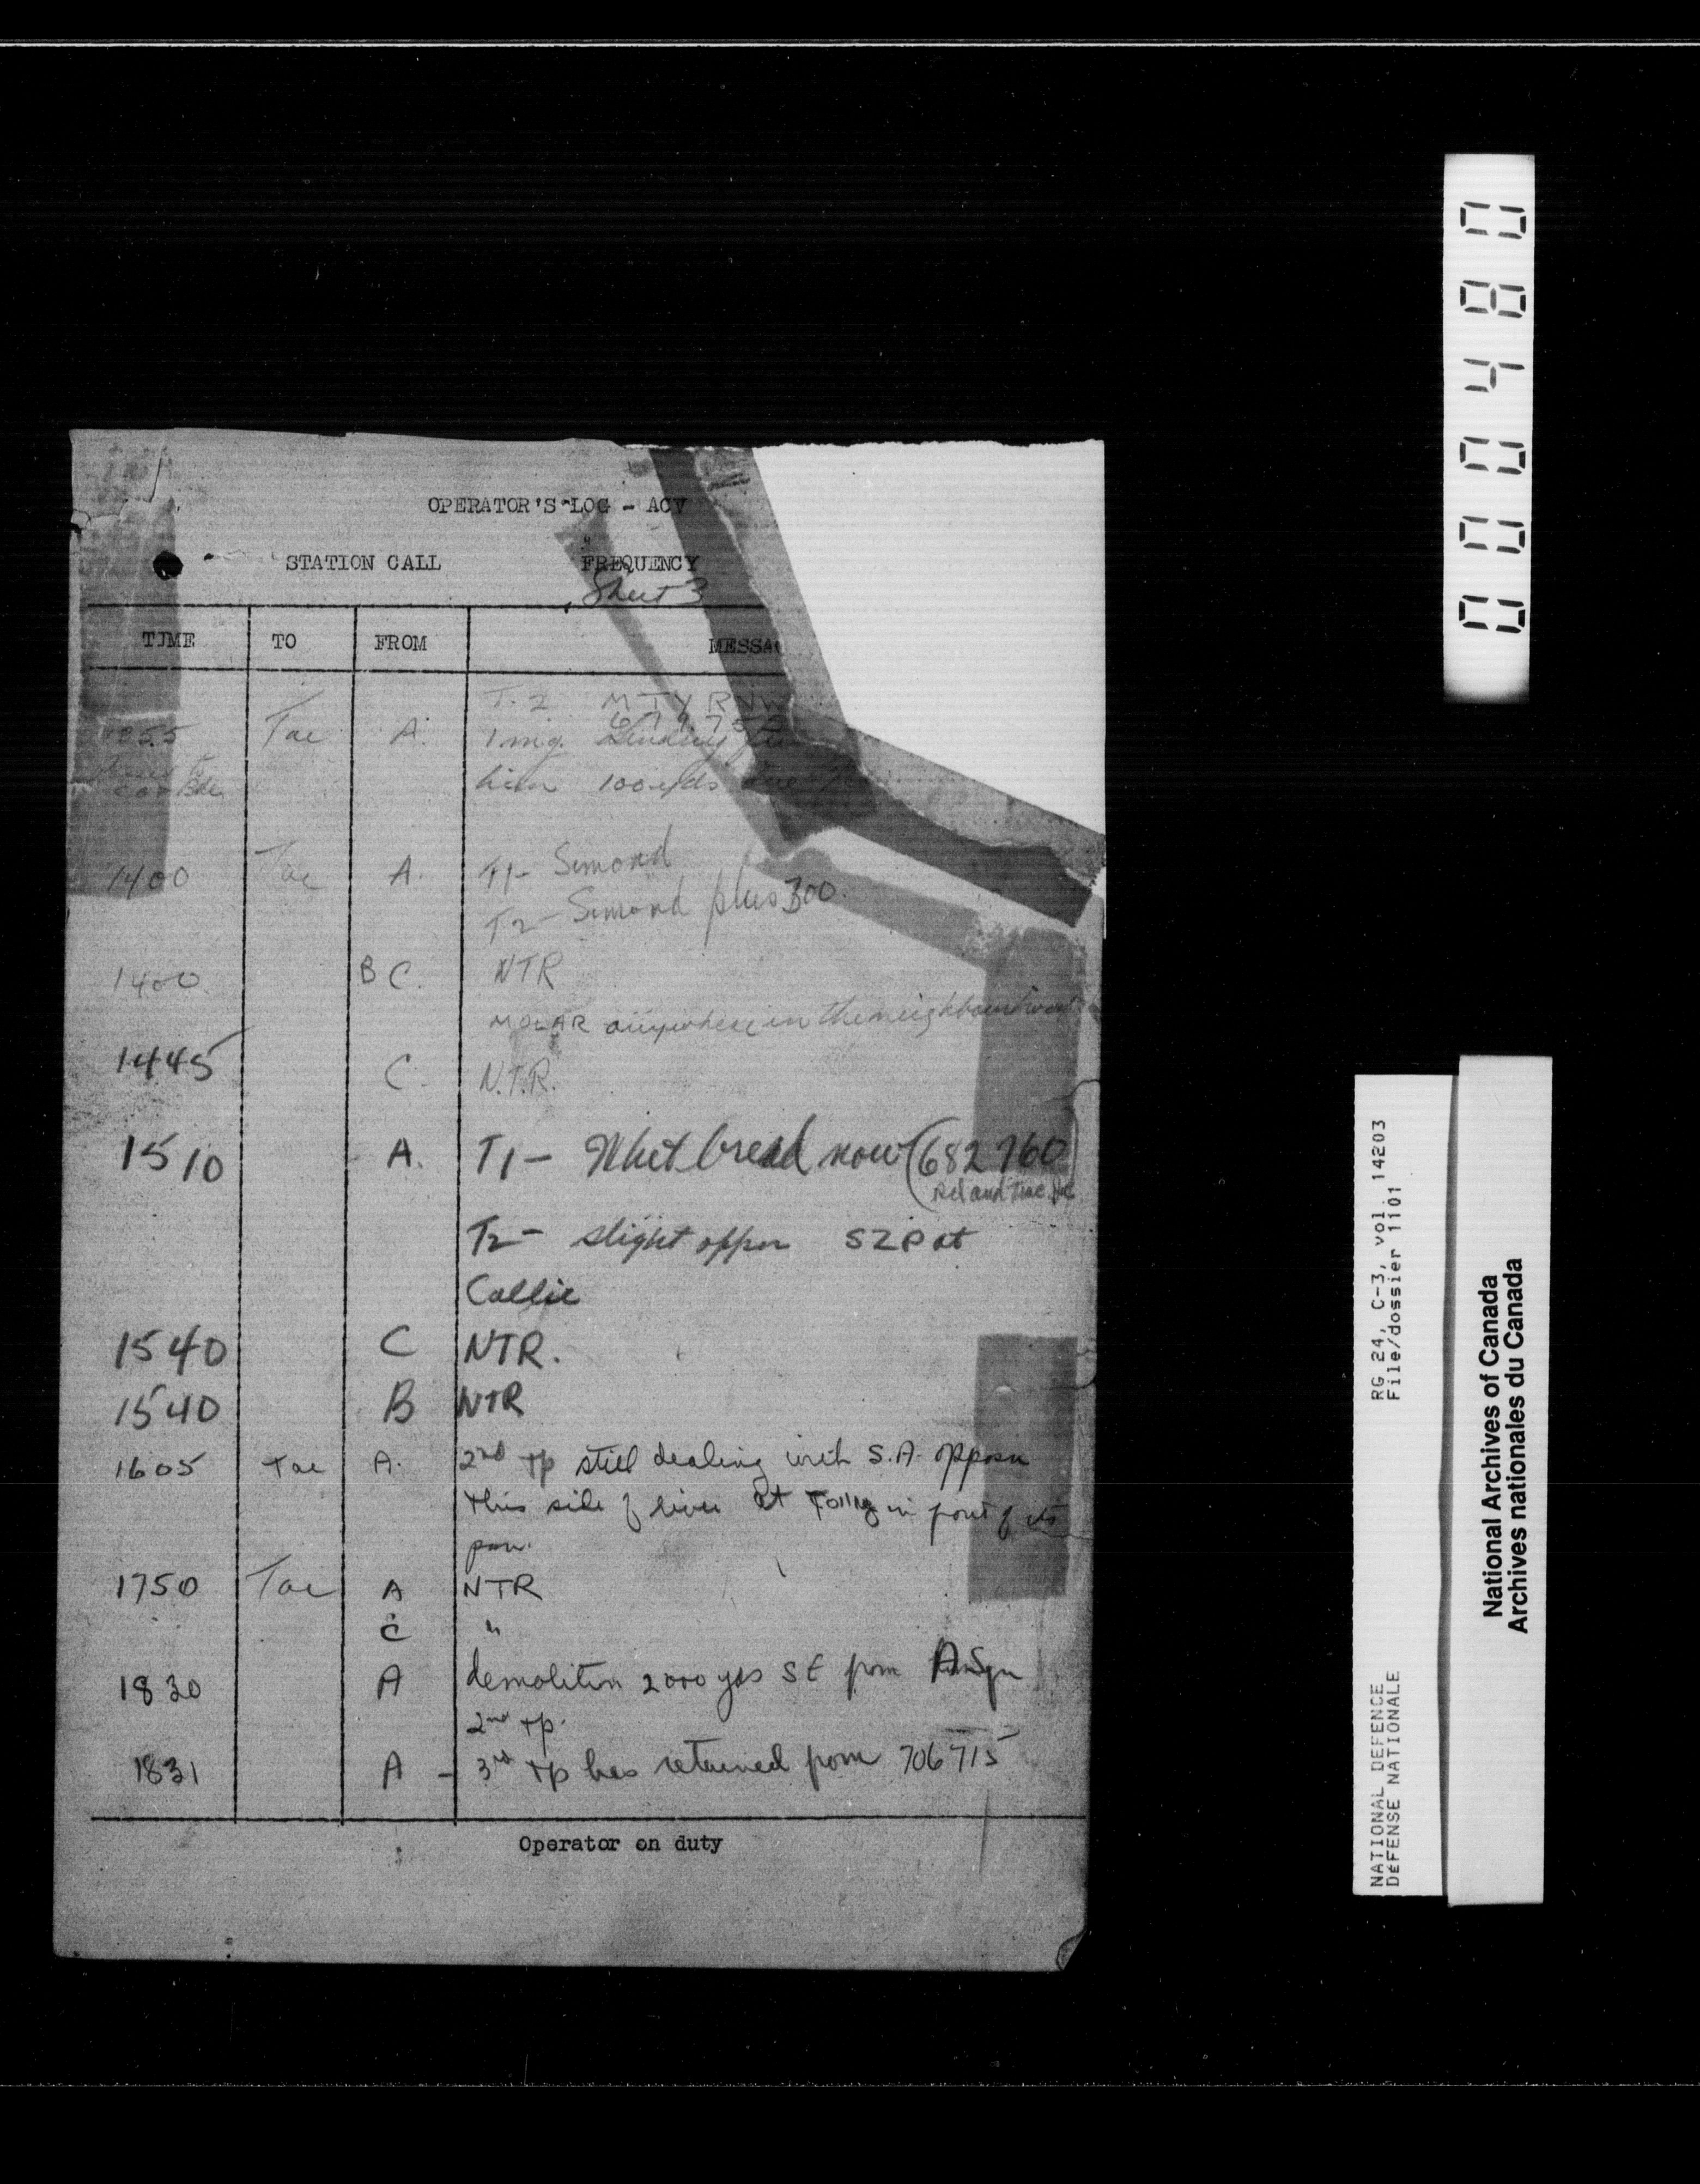 OPERATOR'S LOG - ACV
STATION CALL FREQUENCY
Sheet 3
TIME TO FROM MESSAG
T.2 M T Y R N
1355 Tac A. 1 mg.
him 100 yds due
1400 Tac A. T1- Simond
T2- Simond plus 300.
1400. B C. NTR
MOLAR anywhere in the neighbourhood
1445 C. N.T.R.
1510 A. T1- Whitbread now (682760)
T2- slight oppn at
Callie
1540 C NTR.
1540 B NTR
1605 Tac A. 2nd tp still dealing with S.A. opposn
this side of river at in front of its
posn.
1750 Tac A NTR
C "
1830 A demolition 2000 yds SE from A Sqn
2nd tp.
1831 A - 3rd tp has returned from 706715
Operator on duty
000480
RG 24, C-3, vol. 14203
File/dossier 1101
NATIONAL DEFENCE
DÉFENSE NATIONALE
National Archives of Canada
Archives nationales du Canada